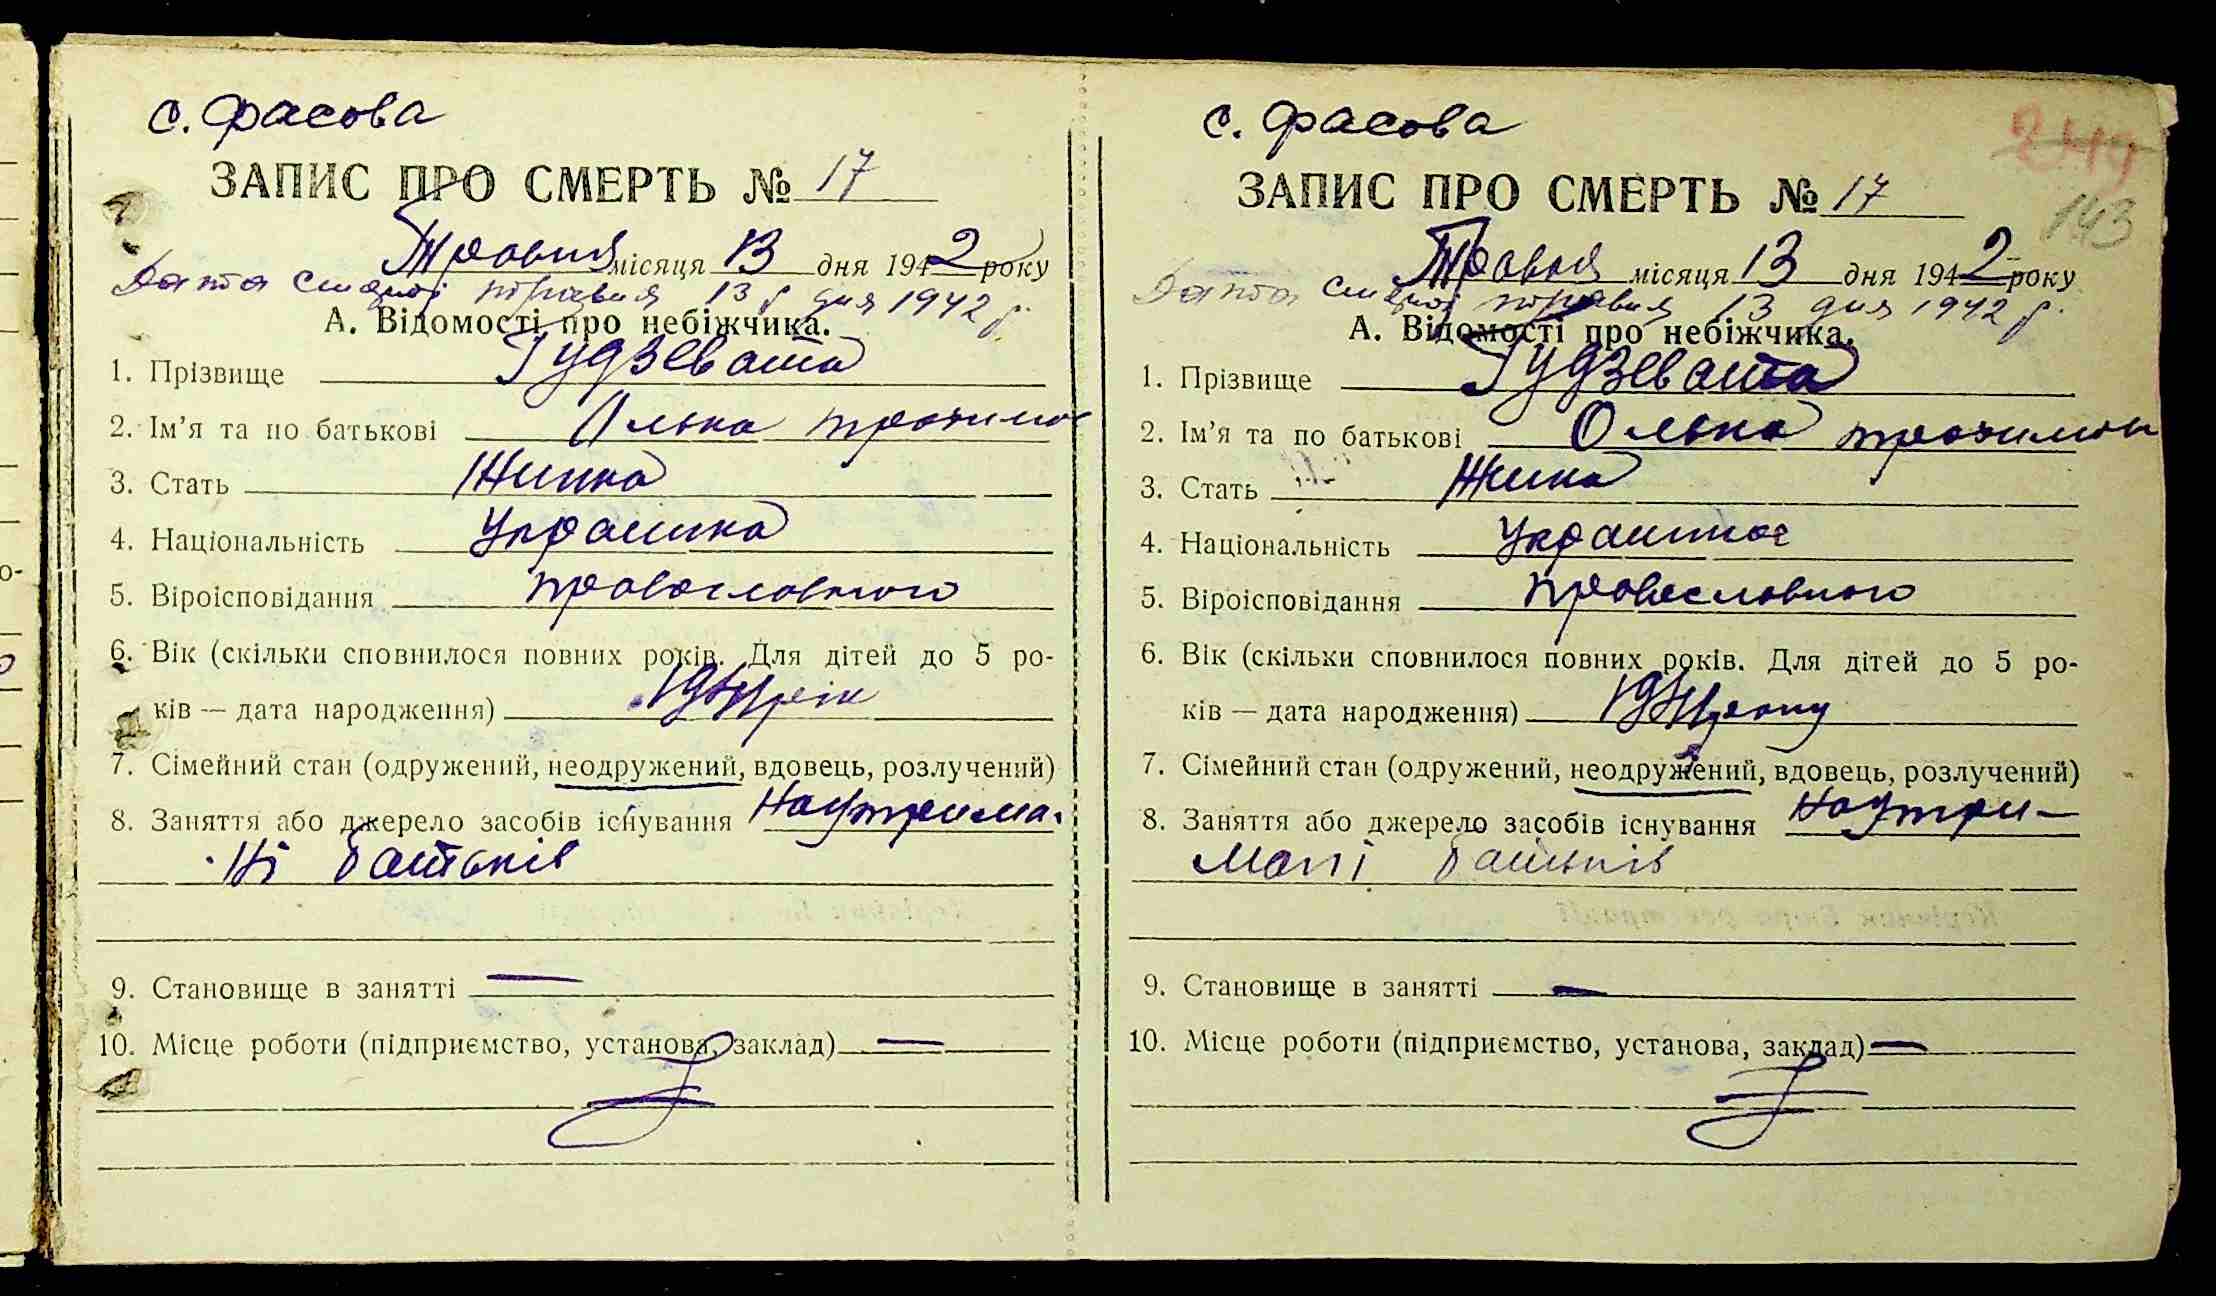 с. Фасова
ЗАПИС ПРО СМЕРТЬ № 17
Травня місяця 13 дня 1942 року
Дата смерті травня 13 дня 1942 р.
А. Відомості про небіжчика.
1. Прізвище Гудзевата
2. Ім’я та по батькові Олька
3. Стать Жинка
4. Національність Украинка
5. Віроісповідання православного
6. Вік (скільки сповнилося повних років. Для дітей до 5 ро-
ків — дата народження) рік
7. Сімейний стан (одружений, неодружений, вдовець, розлучений)
8. Заняття або джерело засобів існування Наутрима-
ні батьків
9. Становище в занятті —
10. Місце роботи (підприємство, установа, заклад) —
с. Фасова
ЗАПИС ПРО СМЕРТЬ № 17
Травня місяця 13 дня 1942 року
Дата смерті травня 13 дня 1942 р.
А. Відомості про небіжчика.
1. Прізвище Гудзевата
2. Ім’я та по батькові Олька
3. Стать Жинка
4. Національність Украинка
5. Віроісповідання православного
6. Вік (скільки сповнилося повних років. Для дітей до 5 ро-
ків — дата народження) року
7. Сімейний стан (одружений, неодружений, вдовець, розлучений)
8. Заняття або джерело засобів існування Наутри-
мані батьків
9. Становище в занятті —
10. Місце роботи (підприємство, установа, заклад) —
249
143